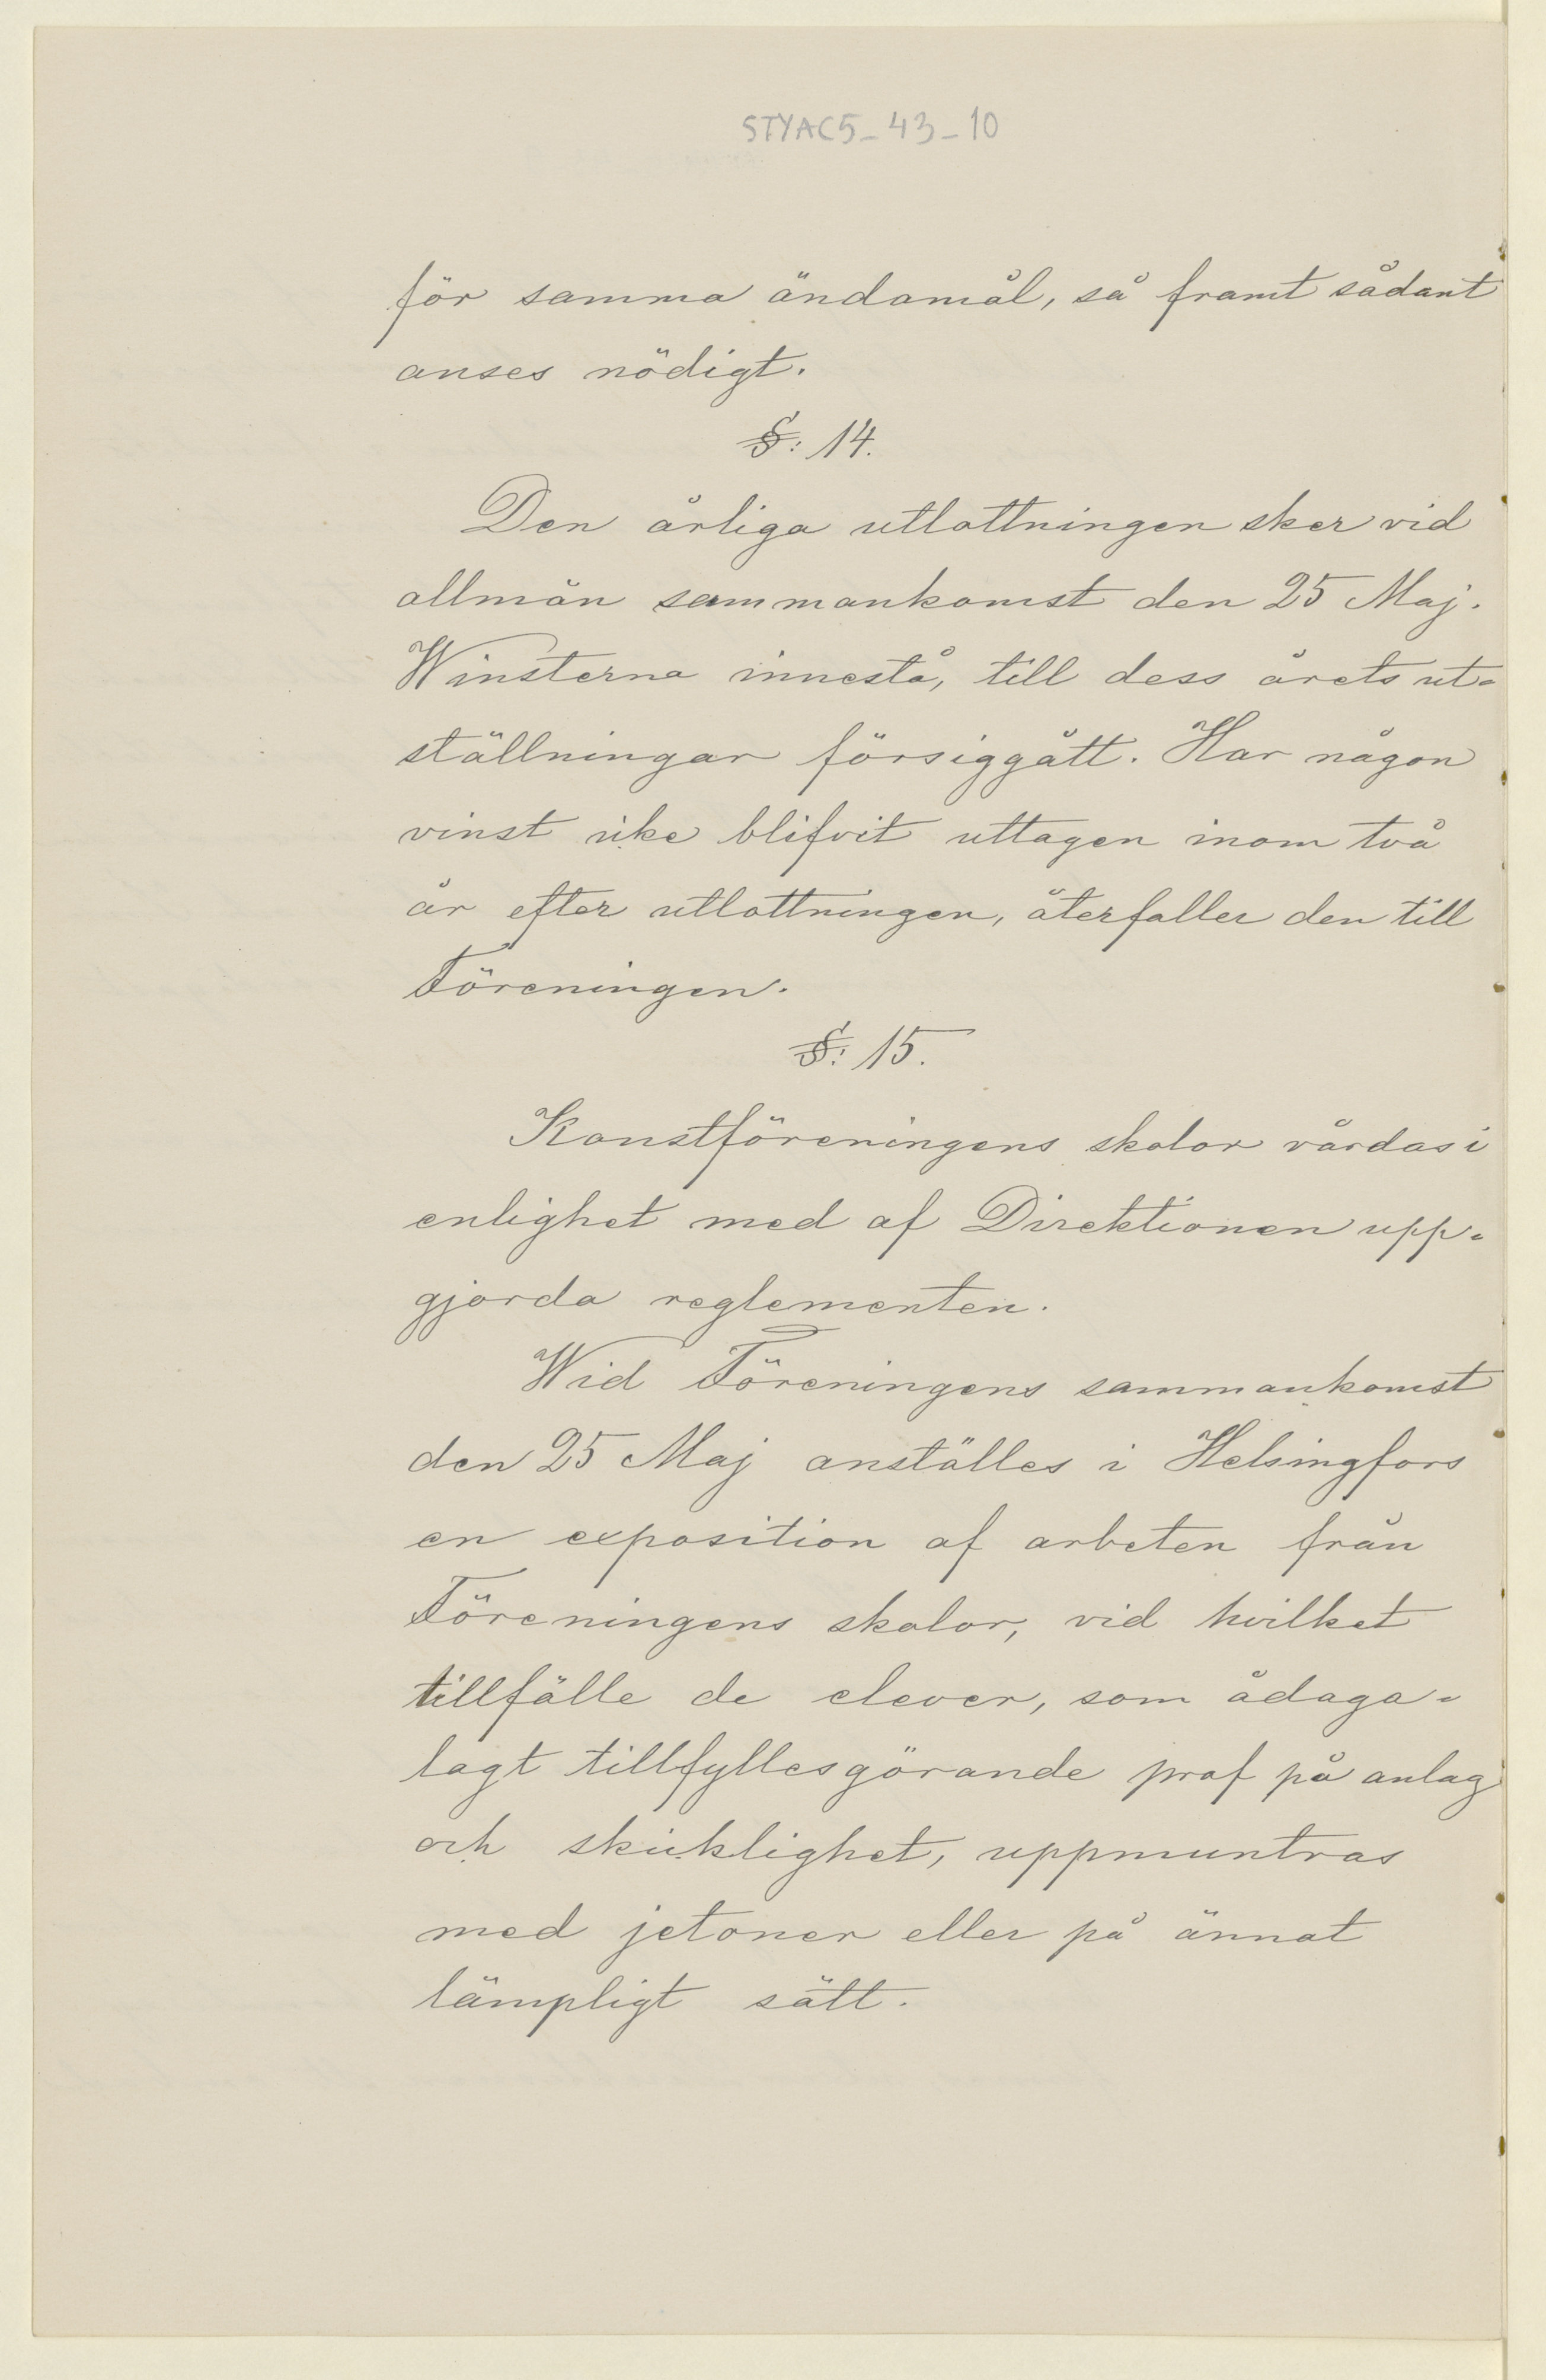 STYAC5_43_10
för samma ändamål, så framt sådant
anses nödigt.
§: 14.
Den årliga utlottningen sker vid
allmän sammankomst den 25 Maj.
Winsterna innestå, till dess årets ut-
ställningar försiggått. Har någon
vinst icke blifvit uttagen inom två
år efter utlottningen, återfaller den till
Föreningen.
§: 15.
Konstföreningens skolor vårdas i
enlighet med af Direktionen upp-
gjorda reglementen.
Wid Föreningens sammankomst
den 25 Maj anställes i Helsingfors
en exposition af arbeten från
Föreningens skolor, vid hvilket
tillfälle de elever, som ådaga-
lagt tillfyllesgörande prof på anlag
och skicklighet, uppmuntras
med jetoner eller på annat
lämpligt sätt.